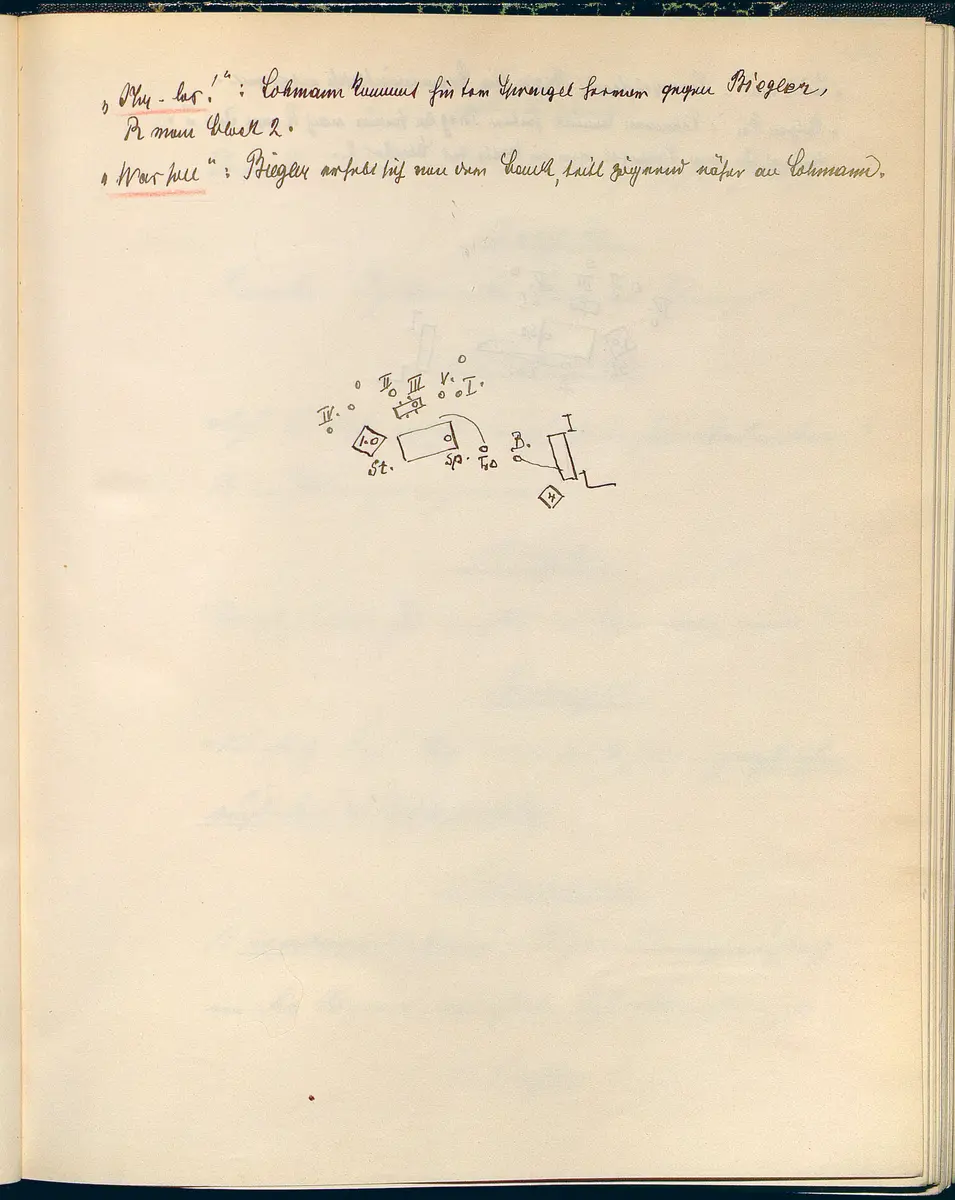 „ - los!“: Lohmann kommt hinter Sprengel hervor gegen Biegler,
R von Block 2.
„Was soll“: Biegler erhebt sich von dem Bank, tritt zögernd näher an Lohmann.
II III V. I.
IV.
1.0
St. Sp. B. I
4